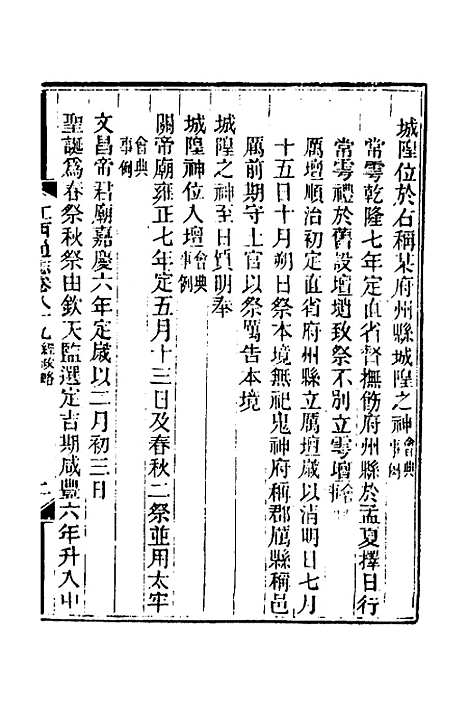 城隍位於右稱某府州縣城隍之神會典事例
常雩乾隆七年定直省督撫飭府州縣於孟夏擇日行
常雩禮於舊設壇壝致祭不別立雩壇
厲壇順治初定直省府州縣立厲壇歲以清明日七月
十五日十月朔日祭本境無祀鬼神府稱郡厲縣稱邑
厲前期守土官以祭厲告本境
城隍之神至日質明奉
城隍神位入壇會典事例
關帝廟雍正七年定五月十三日及春秋二祭並用太牢
會典事例
文昌帝君廟嘉慶六年定歲以二月初三日
聖誕為春祭秋祭由欽天監選定吉期咸豐六年升入中
江西通志卷八十九經政略
二